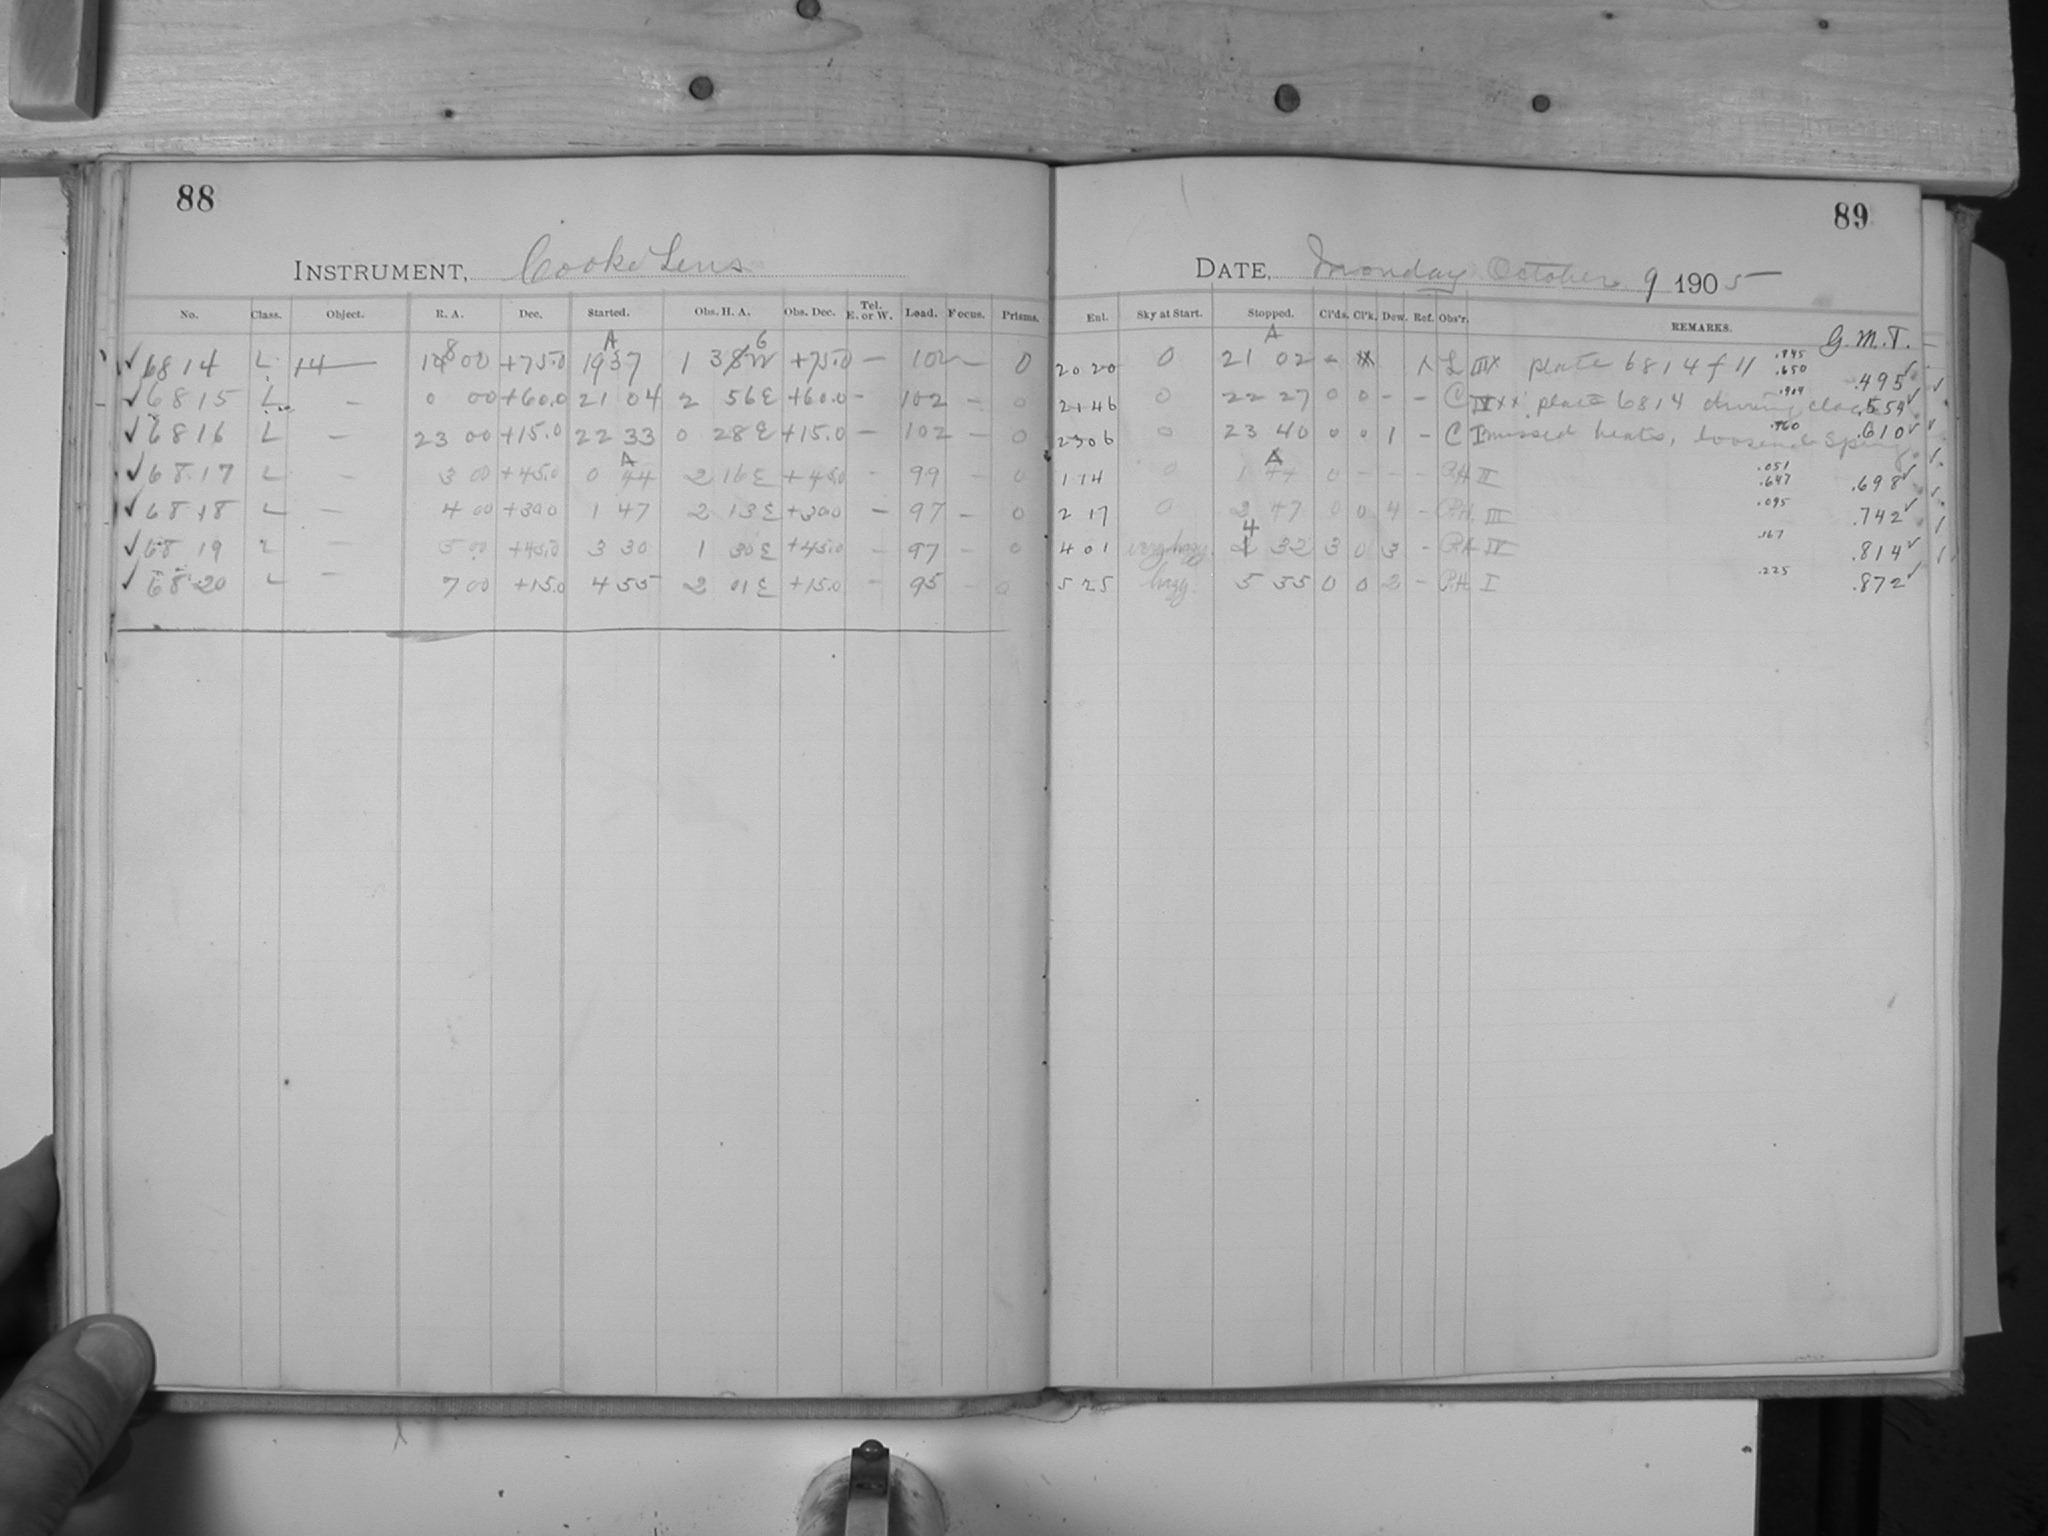 88
INSTRUMENT, Cooke Lens
No. Class. Object. R. A. Dec. Started. Obs. H. A. Obs. Dec. Tel. E. or W. Load. Focus. Prisms.
✓ 6814 L 14 18 00 +75.0 A 19 37 1 36 W +75.0 — 102 — 0
✓ 6815 L — 0 00 +60.0 21 04 2 56 E +60.0 — 102 — 0
✓ 6816 L — 23 00 +15.0 22 33 0 28 E +15.0 — 102 — 0
✓ 6817 L — 3 00 +45.0 A 0 44 2 16 E +45.0 — 99 — 0
✓ 6818 L — 4 00 +30.0 1 47 2 13 E +30.0 — 97 — 0
✓ 6819 L — 5 00 +45.0 3 30 1 30 E +45.0 — 97 — 0
✓ 6820 L — 7 00 +15.0 4 55 2 01 E +15.0 — 95 — 0
89
DATE, Monday October 9 1905
Enl. Sky at Start. Stopped. Cl'ds. Cl'k. Dew. Ref. Obs'r. REMARKS. G.M.T.
20 20 0 A 21 02 - L III X plate 6814 f 11 .845 .650 .495 ✓
21 46 0 22 27 0 0 - - C IV XX plate 6814 driving clock .909 .559 ✓
23 06 0 23 40 0 0 1 - C I missed beats, loosened spring .960 .610 ✓
1 14 0 A 1 44 0 - - - P.H. II .051 .647 .698 ✓
2 17 0 2 47 0 0 4 - P.H. III .095 .742 ✓
4 01 very hazy. 4 32 3 0 3 - P.H. IV .167 .814 ✓
5 25 hazy. 5 55 0 0 2 - P.H. I .225 .872 ✓